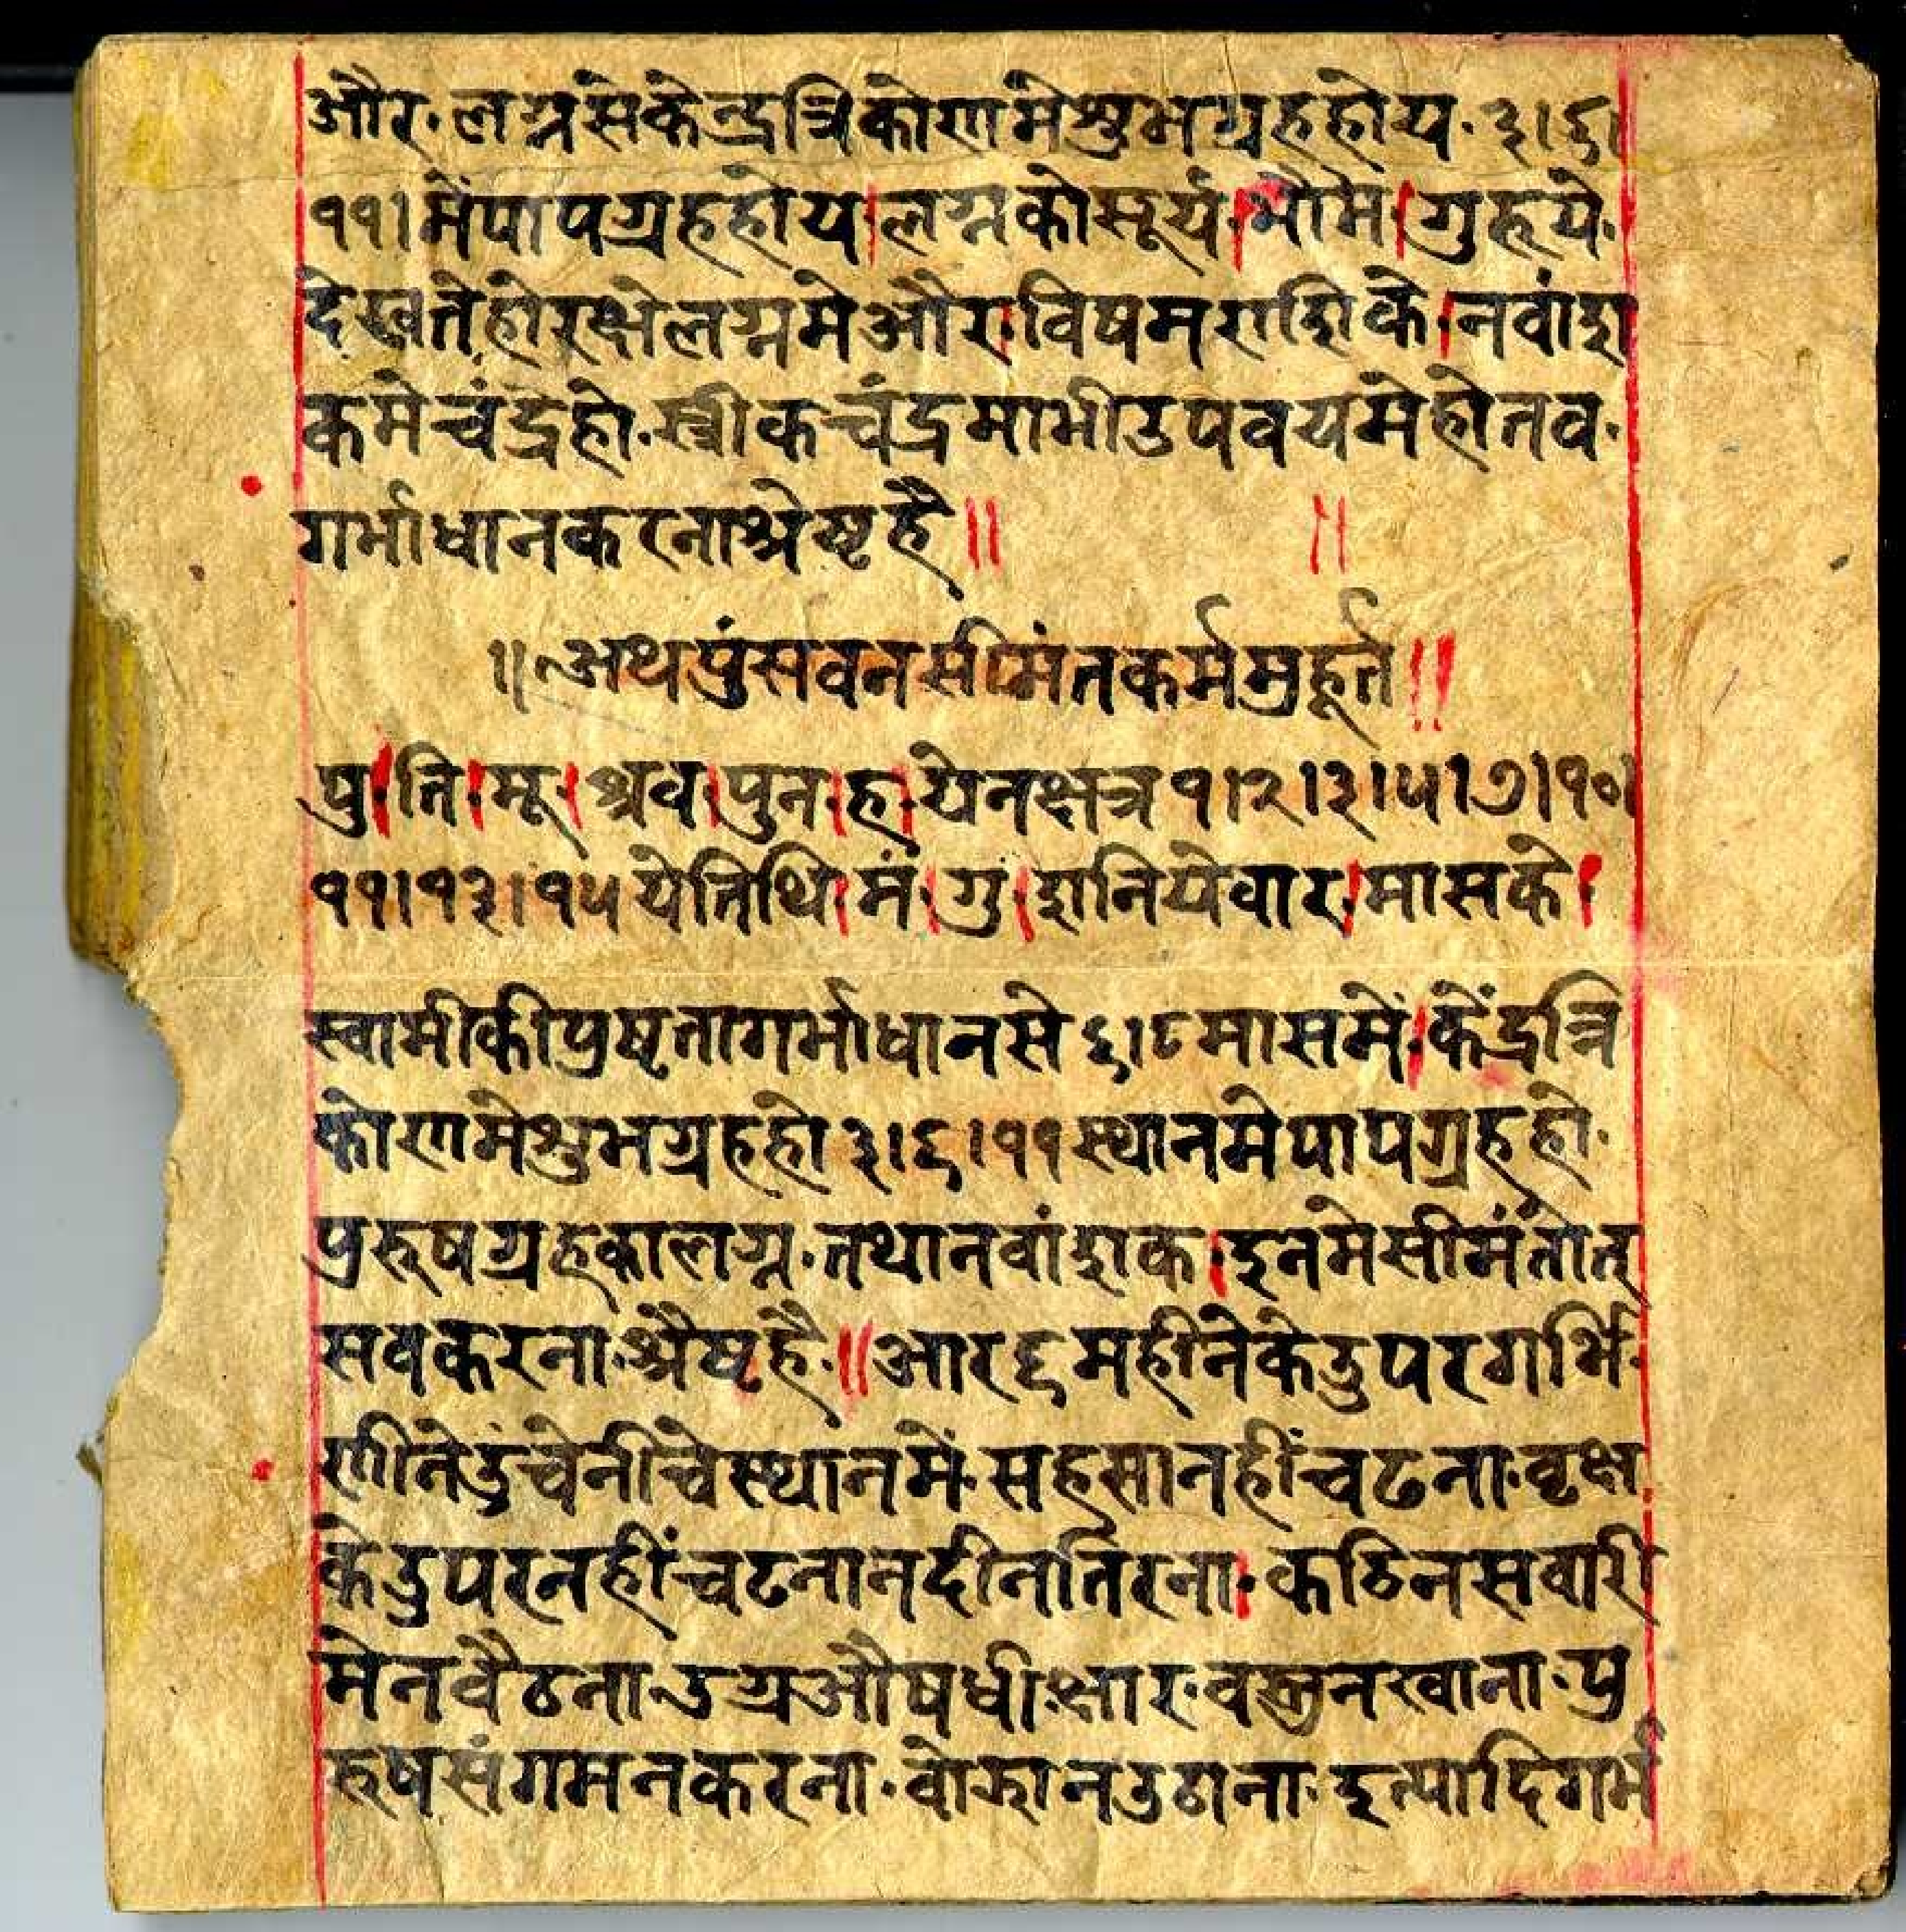 और॰लग्नसेकेन्द्रत्रिकोणमेशुभग्रहहोय॰३।६।
११।मेंपापग्रहहोय।लग्नकोसूर्य।भौम।गुरूये॰
देखतेहोरक्षेलग्नमेऔर।विषमराशिके।नवांश
कमेचंद्रहो॰स्त्रीकचंद्रमाभीउपचयमेहोतव॰
गर्भाधानकरनाश्रेष्टहै॥ ॥
॥अथपुंसवनसीमंतकर्ममुहूर्त॥
पु।ति।मू।श्रव।पुन।ह।येनक्षत्र१।२।३।५।७।१०।
११।१३।१५येतिथि।मं।गु।शनियेवार।मासके।
स्वामीकीपुष्टतागर्भाधानसे६।८मासमें।केंद्रत्रि
कोणमेशुभग्रहहो३।६।११स्थानमेपापग्रहहो॰
पुरूषग्रहकालग्न॰तथानवांशक।इनमेसीमंतोत्
सवकरना॰श्रैष्टहै॰॥आर६महीनेकेउपरगर्भि॰
णीनेउंचेनीचेस्थानमें॰सहसानहींचढना॰वृक्ष
केउपरनहींचढनानदीनतिरना।कठिनसवारी
मेनवैठना॰उग्रऔषधी॰क्षार॰वस्तुनखाना॰पु
रुषसंगमनकरना॰वोझानउठाना॰इत्यादिगर्भ